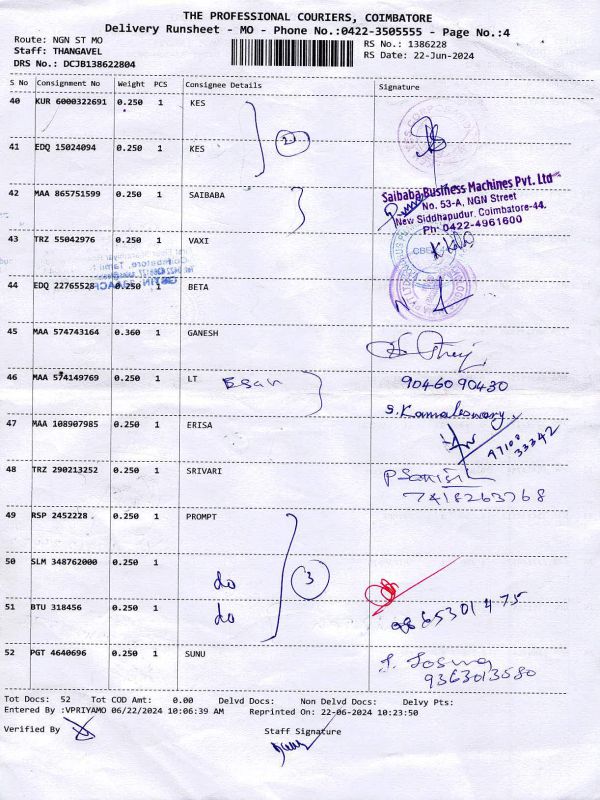 THE PROFESSIONAL COURIERS, COIMBATORE
Delivery Runsheet - MO - Phone No.:0422-3505555 - Page No.:4
Route: NGN ST MO
RS No.: 1386228
Staff: THANGAVEL
RS Date: 22-Jun-2024
DRS No.: DCJB138622804
S No Consignment No Weight PCS Consignee Details Signature
40 KUR 6000322691 0.250 1 KES
2
41 EDQ 15024094 0.250 1 KES
42 MAA 865751599 0.250 1 SAIBABA
Saibaba Business Machines Pvt. Ltd
No. 53-A, NGN Street
New Siddhapudur, Coimbatore-44.
Ph: 0422-4961600
43 TRZ 55042976 0.250 1 VAXI
44 EDQ 22765528 0.250 1 BETA
45 MAA 574743164 0.360 1 GANESH
46 MAA 574149769 0.250 1 LT Esan 9046090430
S. Kamaleswary.
47 MAA 108907985 0.250 1 ERISA
97108
33342
48 TRZ 290213252 0.250 1 SRIVARI
7418263768
49 RSP 2452228 0.250 1 PROMPT
3
50 SLM 348762000 0.250 1 do
51 BTU 318456 0.250 1 do
52 PGT 4640696 0.250 1 SUNU
9363013580
Tot Docs: 52 Tot COD Amt: 0.00 Delvd Docs: Non Delvd Docs: Delvy Pts:
Entered By :VPRIYAMO 06/22/2024 10:06:39 AM Reprinted On: 22-06-2024 10:23:50
Verified By
Staff Signature